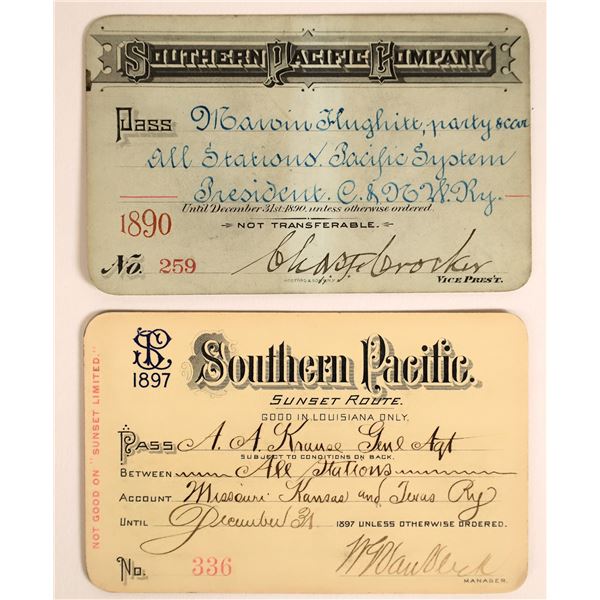 SOUTHERN PACIFIC COMPANY
Pass Marvin Hughitt, party & car
All Stations Pacific System
President. C. & N W. Ry.
Until December 31st 1890, unless otherwise ordered.
1890
NOT TRANSFERABLE.
No. 259 Chas. F. Crocker
VICE PRES'T.
SP
1897
Southern Pacific.
SUNSET ROUTE.
GOOD IN LOUISIANA ONLY.
PASS A. A. Krause Genl Agt
SUBJECT TO CONDITIONS ON BACK.
BETWEEN All Stations
ACCOUNT Missouri Kansas and Texas Ry
UNTIL December 31 1897 UNLESS OTHERWISE ORDERED.
No. 336 W. G. Van Vleck
MANAGER.
NOT GOOD ON "SUNSET LIMITED."